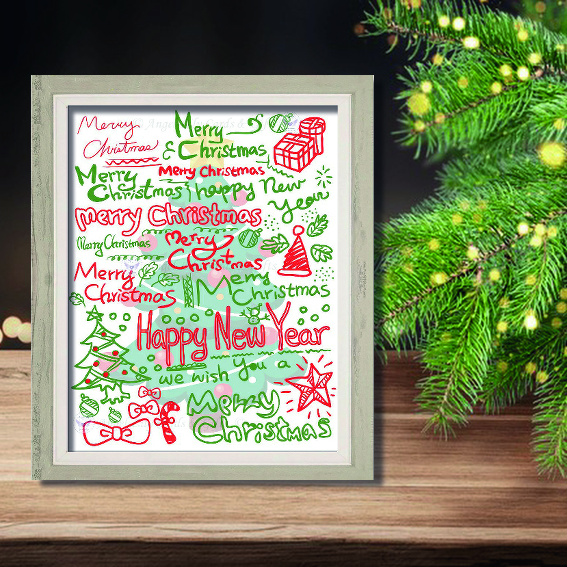 Merry
Christmas
Merry
& Christmas
Merry Christmas
Merry
Christmas; happy New
year
merry Christmas
Merry Christmas
Merry
Christmas
Merry
Christmas
Merry
Christmas
Happy New Year
we wish you a
Merry
Christmas